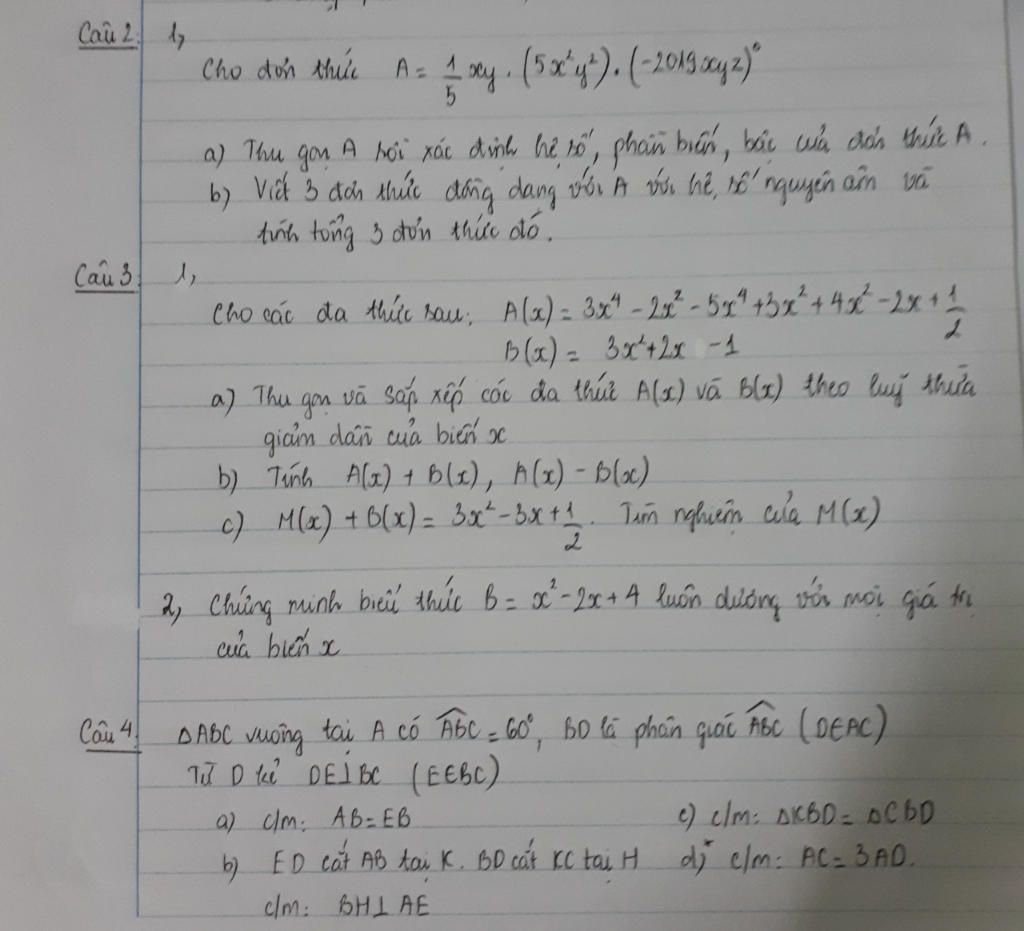 Câu 2: 1,
Cho đơn thức A = 1/5 xy . (5x²y²) . (-2019xyz)⁰
a) Thu gọn A rồi xác định hệ số, phần biến, bậc của đơn thức A.
b) Viết 3 đơn thức đồng dạng với A với hệ số nguyên âm và
tính tổng 3 đơn thức đó.
Câu 3: 1,
Cho các đa thức sau: A(x) = 3x⁴ - 2x² - 5x⁴ + 3x² + 4x² - 2x + 1/2
B(x) = 3x² + 2x - 1
a) Thu gọn và sắp xếp các đa thức A(x) và B(x) theo luỹ thừa
giảm dần của biến x
b) Tính A(x) + B(x), A(x) - B(x)
c) M(x) + B(x) = 3x² - 3x + 1/2. Tìm nghiệm của M(x)
2, Chứng minh biểu thức B = x² - 2x + 4 luôn dương với mọi giá trị
của biến x
Câu 4: ΔABC vuông tại A có ABC = 60°, BD là phân giác ABC (D∈AC)
Từ D kẻ DE⊥BC (E∈BC)
a) c/m: AB = EB c) c/m: ΔKBD = ΔCBD
b) ED cắt AB tại K. BD cắt KC tại H d)* c/m: AC = 3AD.
c/m: BH⊥AE